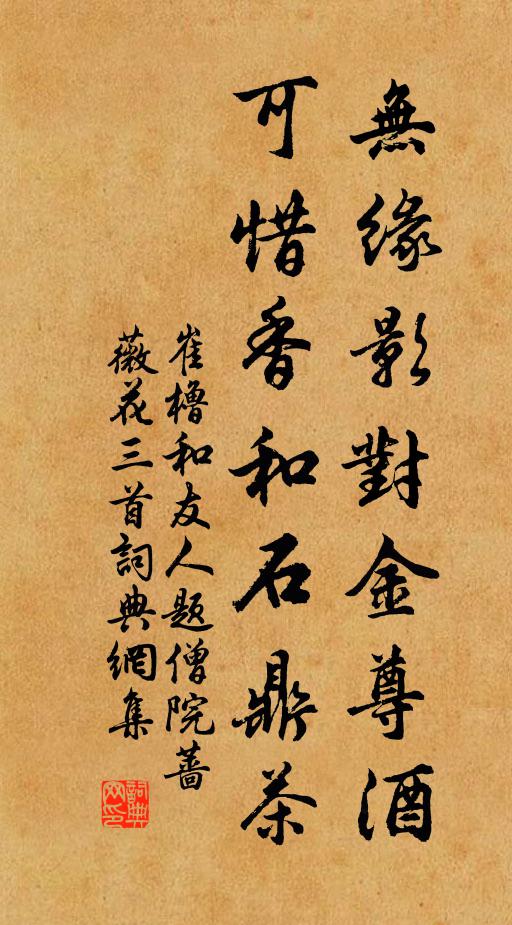 無緣影對金尊酒
可惜香和石鼎茶
崔櫓和友人题僧院薔
薇花三首詞典網集
詞典
网印